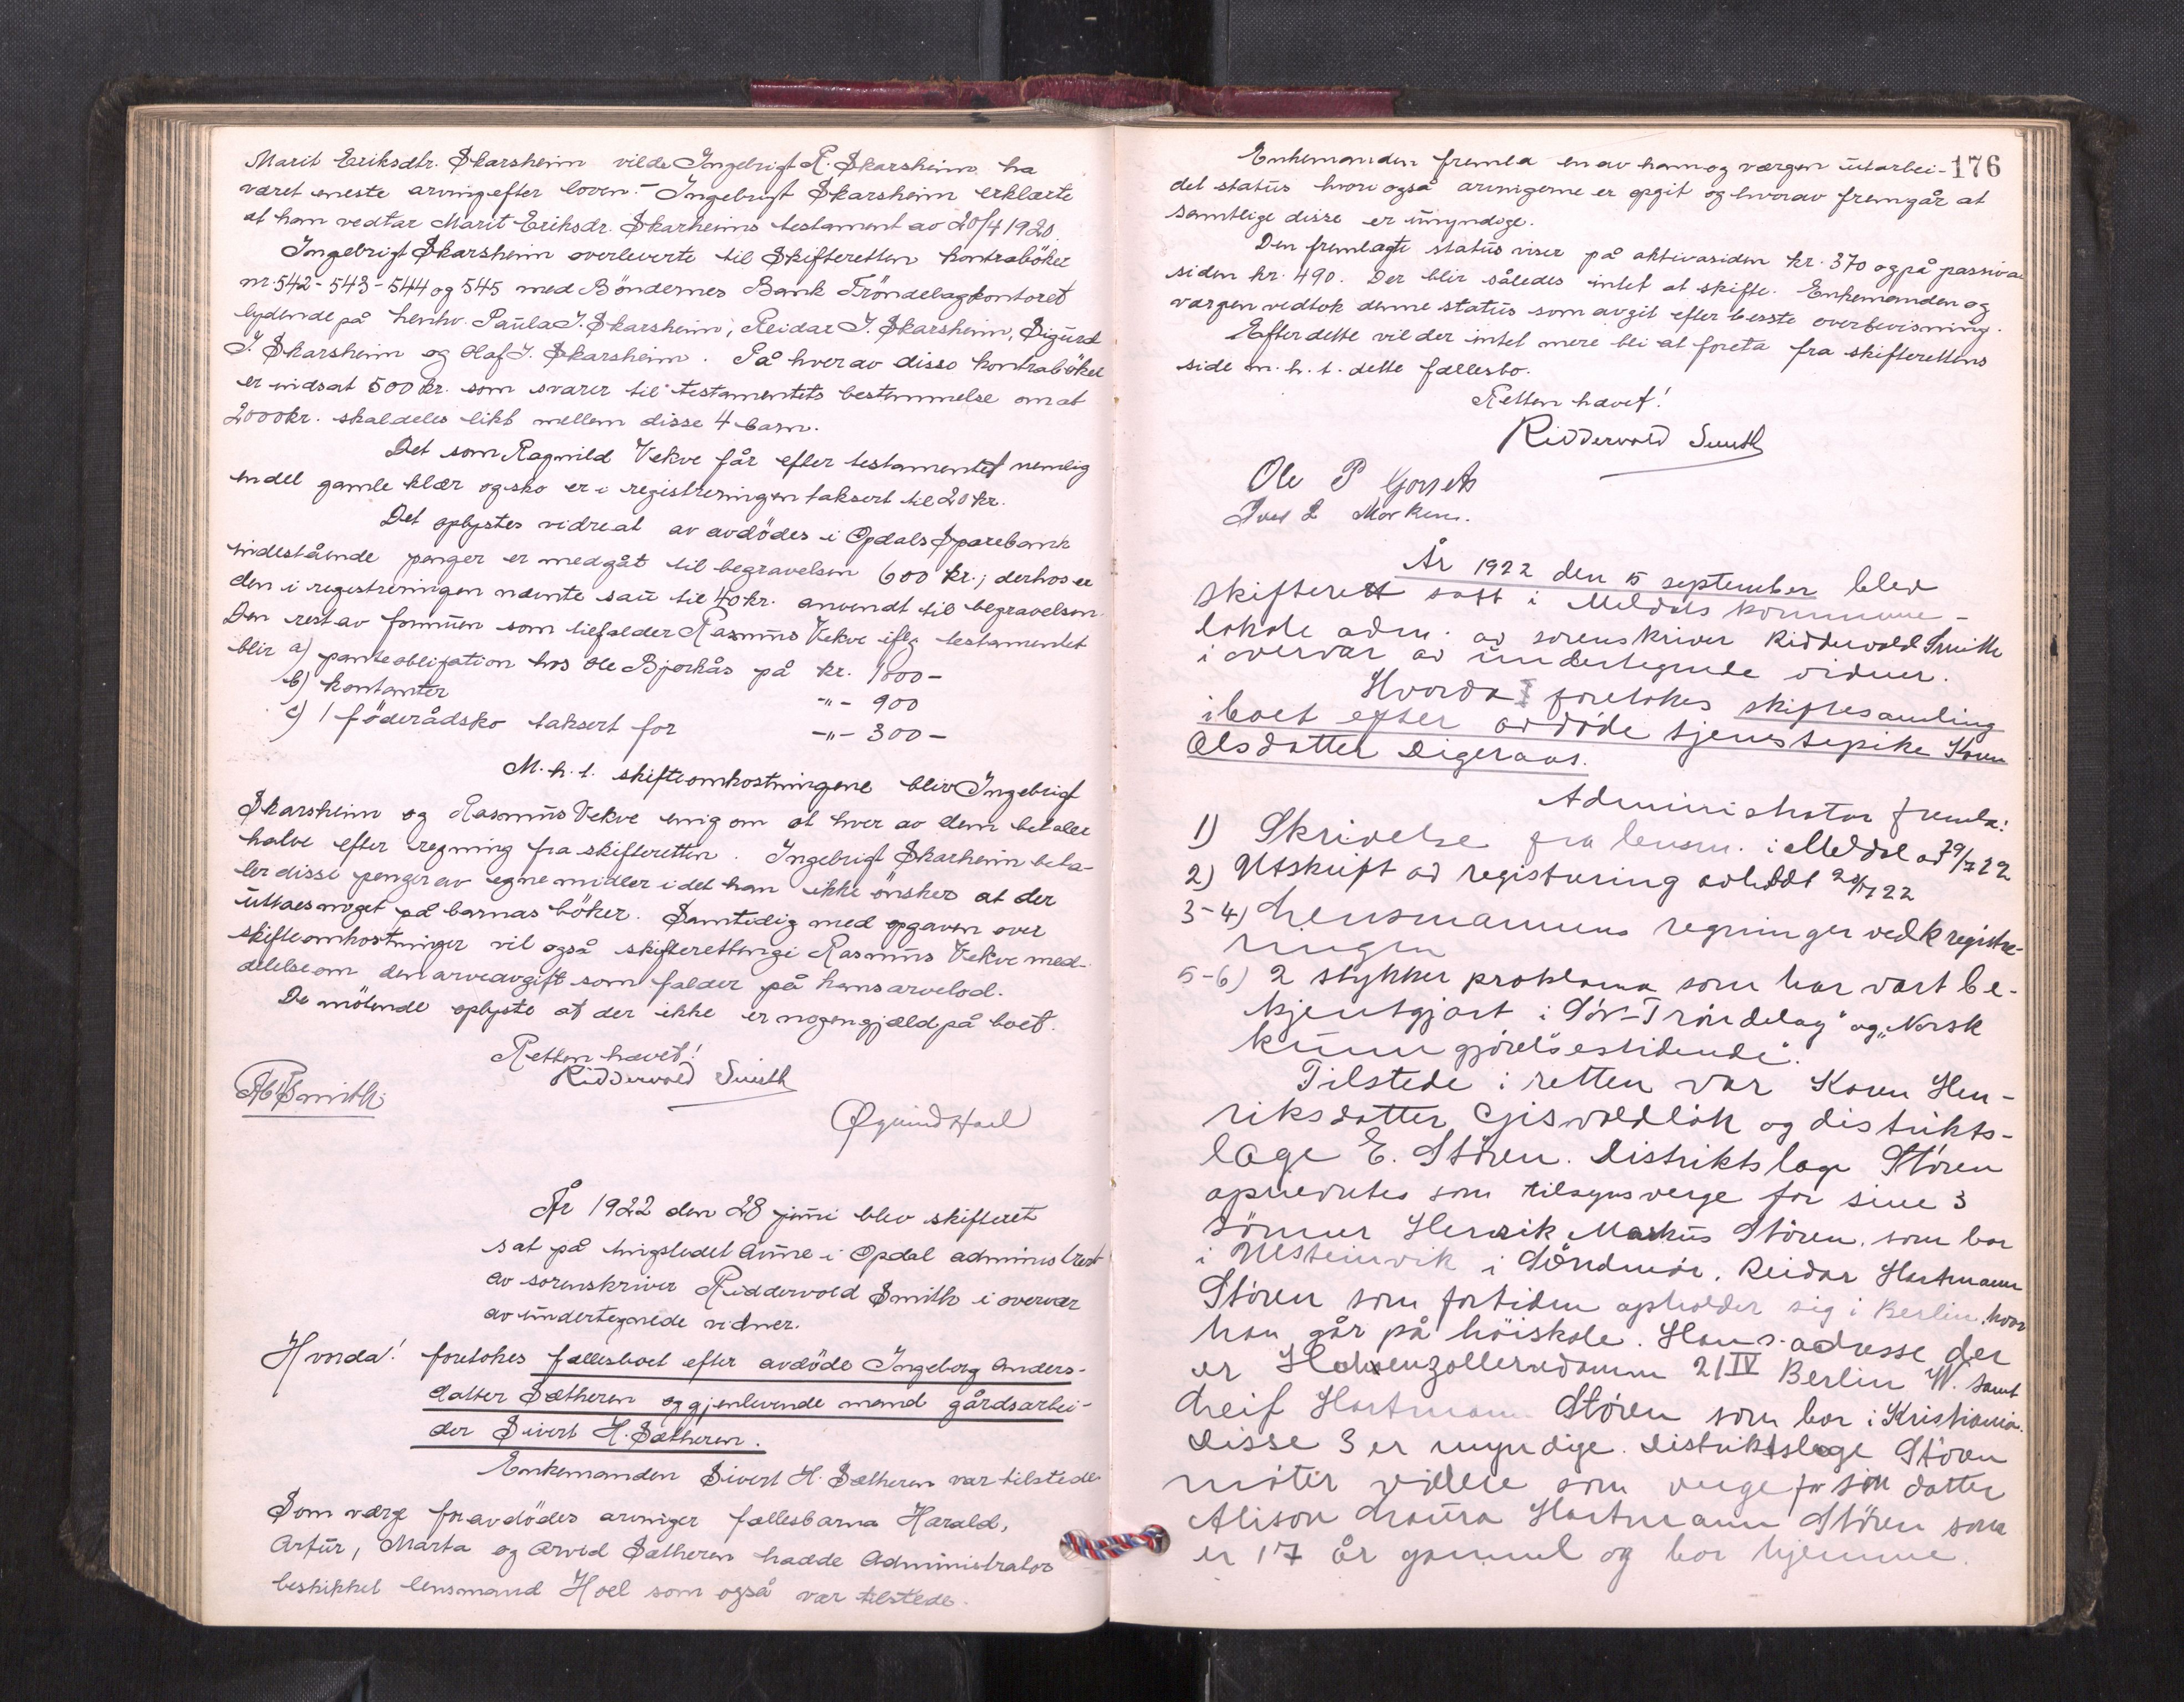 Marit Eriksdtr. Skarsheim vilde Ingebrigt R. Skarsheim ha
været eneste arving efter loven. – Ingebrigt Skarsheim erklærte
at han vedtar Marit Eriksdr. Skarheims testament av 20/4 1920.
Ingebrigt Skarsheim overleverte til Skifteretten kontraböker
nr 542 - 543 - 544 og 545 med Böndernes Bank Tröndelagkontoret
lydende på henhv. Paula I. Skarsheim, Reidar I. Skarsheim, Sigurd
I. Skarsheim og Olaf I. Skarsheim. På hver av disse kontraböker
er indsat 500 kr. som svarer til testamentets bestemmelse om at
2000 kr. skal deles likt mellem disse 4 barn.
Det som Ragnild Vekve får efter testamentet nemlig
endel gamle klær og sko er i registreringen taksert til 20 kr.
Det oplystes vidre at av avdödes i Opdals Sparebank
indestående penger er medgåt til begravelsen 600 kr.; derhos er
den i registreringen nævnte sau til 40 kr. anvendt til begravelsen.
Den rest av formuen som tilfalder Rasmus Vekve iflg testamentet
blir a) panteobligation hos Ole Bjørkås på kr. 1800 –
b) kontanter -"- 900
c) 1 föderådsko taksert for -"- 300 –
M. h. t. skifteomkostningene blev Ingebrigt
Skarsheim og Rasmus Vekve enig om at hver av dem betaler
halve efter regning fra skifteretten. Ingebrigt Skarheim beta-
ler disse penger av egne midler idet han ikke önsker at der
uttaes noget på barnas böker. Samtidig med opgaven over
skifteomkostninger vil også skifteretten gi Rasmus Vekve med-
delelse om den arveavgift som falder på hans arvelod.
De mötende oplyste at der ikke er nogen gjæld på boet.
Retten hævet!
Riddervold Smith
Smith
Øyvind Hoel
År 1922 den 28 juni blev skifteret
sat på tingstedet Aune i Opdal administrert
av sorenskriver Riddervold Smith i overvær
av undertegnede vidner.
Hvorda! foretokes fællesboet efter avdöde Ingeborg Anders-
datter Sætheren og gjenlevende mand gårdsarbei-
der Sivert H. Sætheren.
Enkemanden Sivert H. Sætheren var tilstede.
Som værge for avdödes arvinger fællesbarna Harald,
Artur, Marta og Arvid Sætheren hadde Administrator
beskikket lensmand Hoel som også var tilstede.
176
Enkemanden fremla en av ham og værgen utarbei-
det status hvori også arvingerne er opgit og hvorav fremgår at
samtlige disse er umyndige.
Den fremlagte status viser på aktivasiden kr. 370 og på passiva-
siden kr. 490. Der blir således intet at skifte. Enkemanden og
værgen vedtok denne status som avgit efter besste overbevisning.
Efter dette vil der intet mere bli at foreta fra skifterettens
side m. h. t. dette fællesbo.
Retten hævet!
Riddervold Smith
Ole P
L Morken.
År 1922 den 5 september blev
skifterett satt i Meldals kommune-
lokale adm. av sorenskriver Riddervold Smith
i overvær av undertegnede vidner.
Hvorda foretokes skiftesamling
i boet efter avdöde tjenestepike Karen
Olsdatter Digeraas.
Administrator fremla:
1) Skrivelse fra lensm. i Meldal av 29/7 22
2) Utskrift av registrering avholdt 28/7 22
3-4) Lensmannens regninger vedk registre-
ringen
5-6) 2 stykker proklama som har vært be-
kjentgjort i "Sör-Tröndelag" og "Norsk
kunngjörelsestidende".
Tilstede i retten var Karen Hen-
riksdatter Gisvoldlökk og distrikts-
læge E. Stören. Distriktslæge Stören
opnevntes som tilsynsverge for sine 3
sönner Henrik Markus Stören, som bor
i Ulsteinvik i Söndmör, Reidar Hartmann
Stören som fortiden opholder sig i Berlin, hvor
han går på höiskole. Hans adresse der
er Hohenzollerndamm 21 IV Berlin W. samt
Leif Hartmann Stören som bor i Kristiania.
Disse 3 er myndige. Distriktslæge Stören
möter videre som verge for sin datter
Alison Laura Hartmann Stören som
er 17 år gammel og bor hjemme.